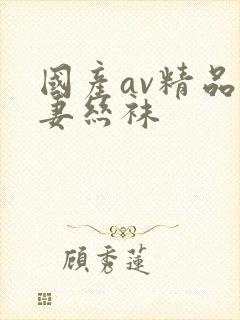 國產av精品
妻絲袜
顧秀蓮